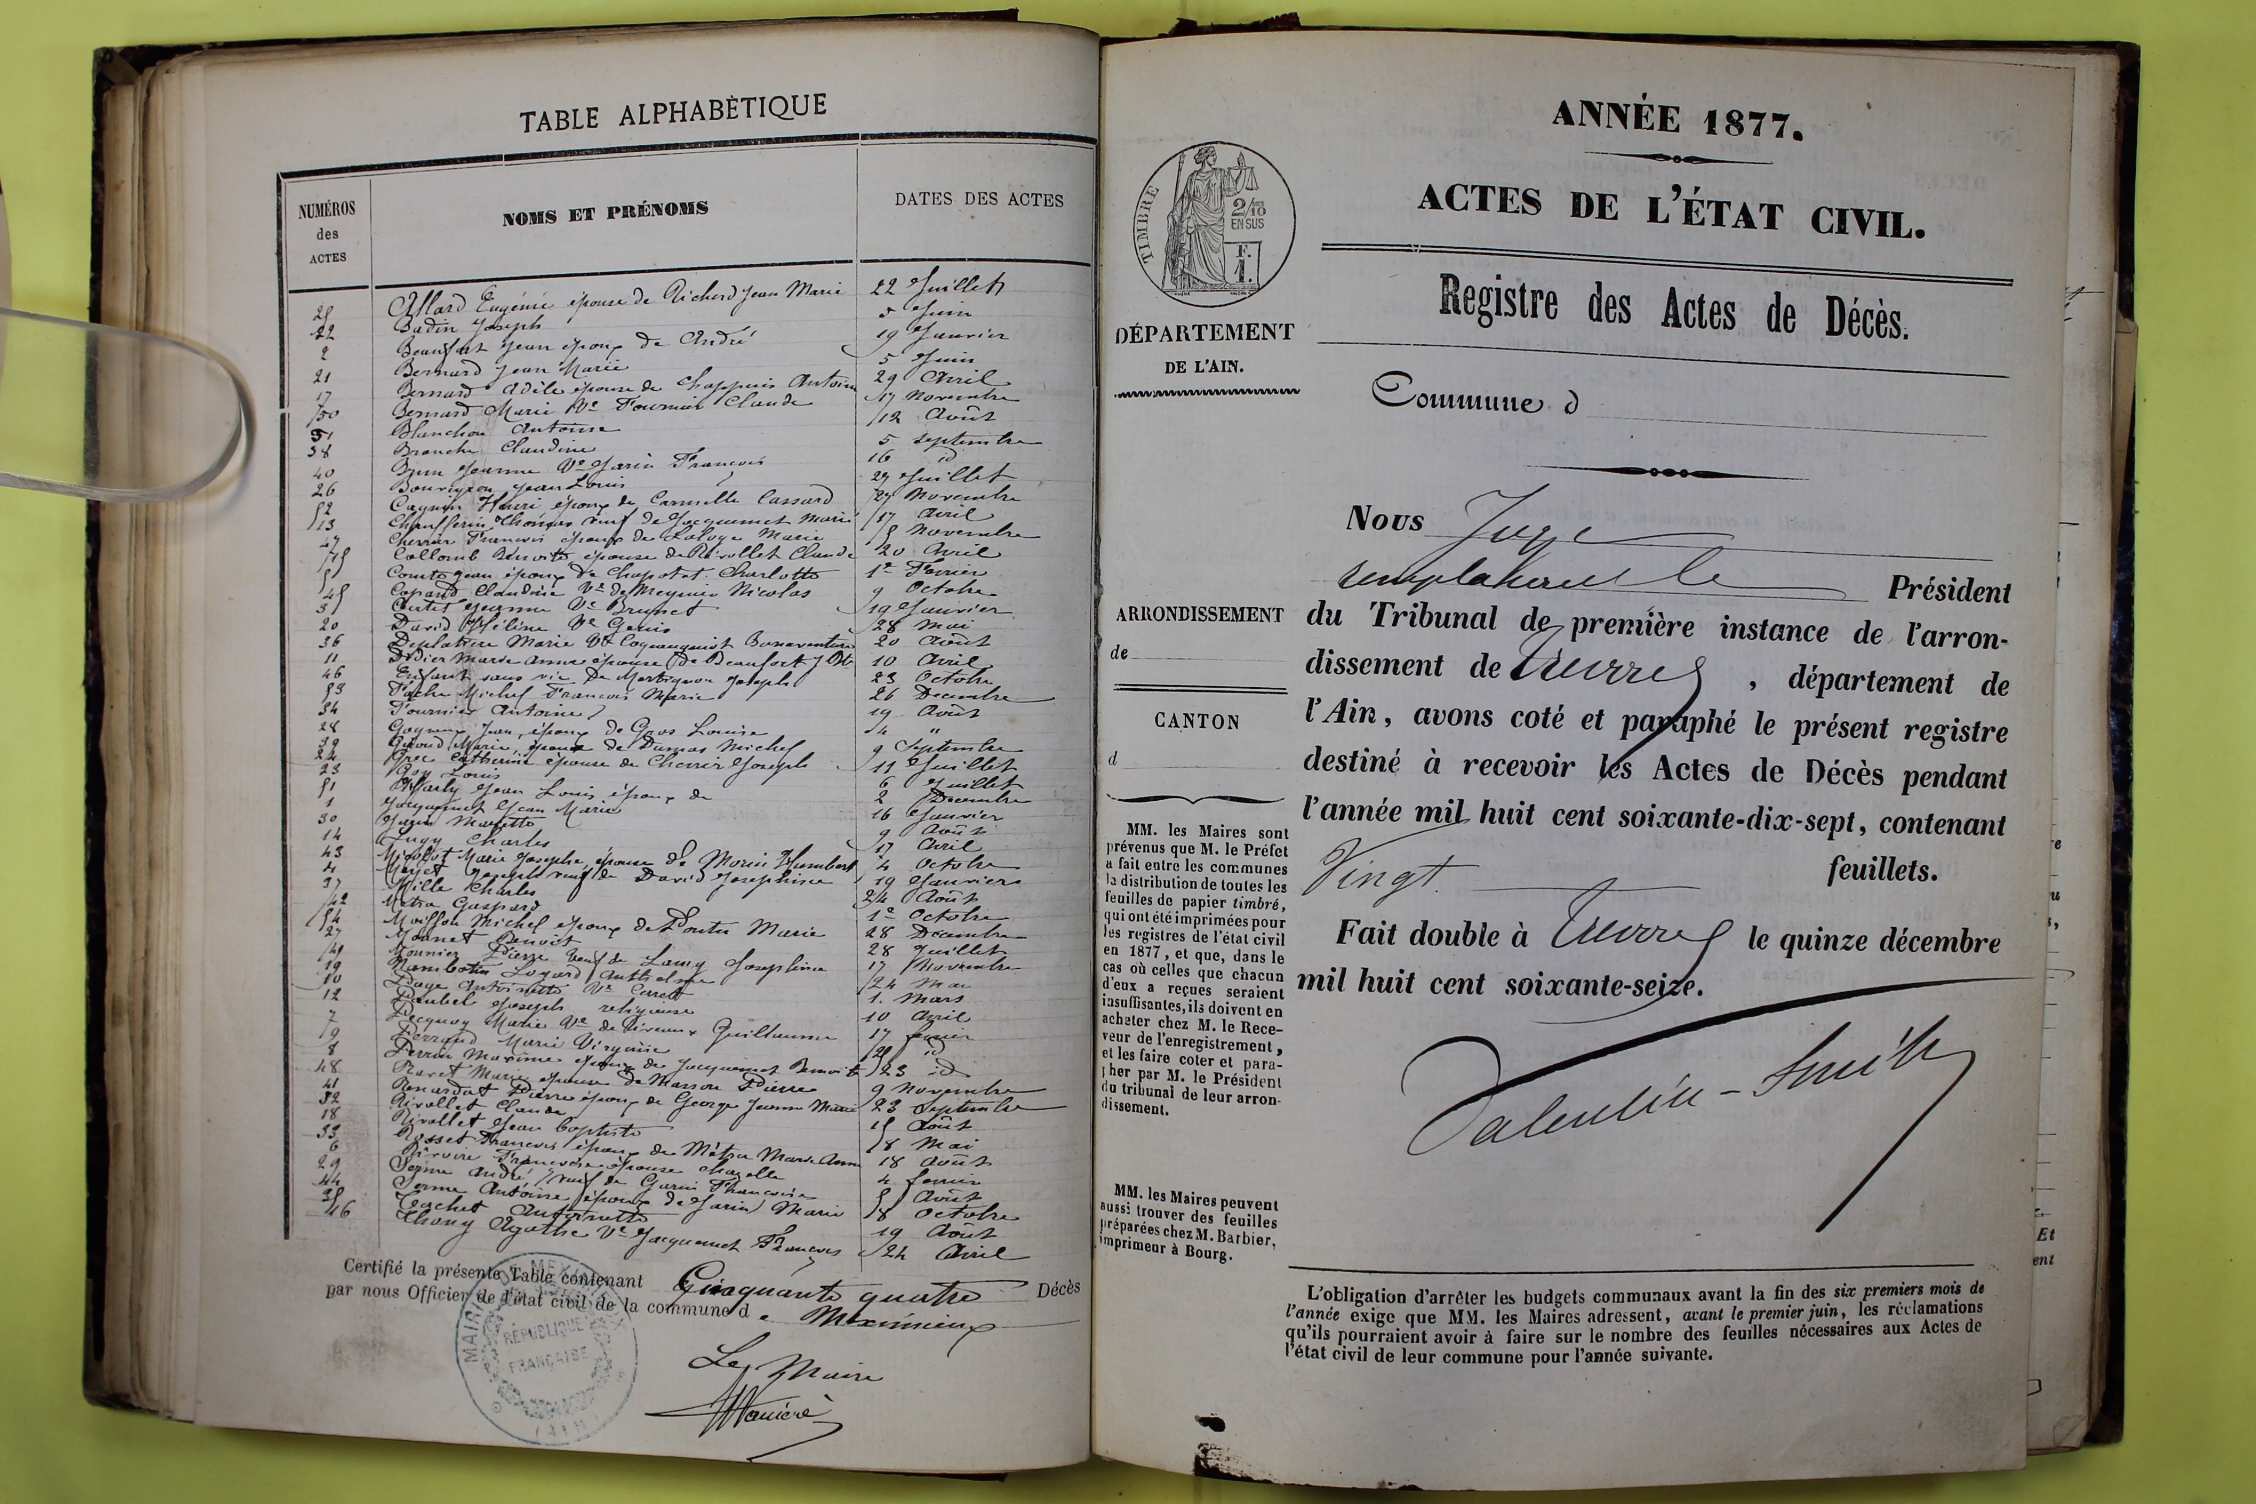 TABLE ALPHABÈTIQUE
NUMÉROS
des
ACTES
NOMS ET PRÉNOMS
DATES DES ACTES
25 Allard Eugénie épouse de Richard Jean Marie 22 Juillet
22 Badin Joseph 5 Juin
2 Beaufort Jean époux de André 19 Janvier
21 Bernard Jean Marie 5 Juin
17 Bernard Adèle épouse de Chappuis Antoine 29 Avril
50 Bernard Marie Ve Fournier Claude 17 Novembre
31 Blanchon Antoine 12 Août
38 Branche Claudine 5 Septembre
40 Brun Jeanne Ve Jarin François 16 id
26 Bouvignon Jean Louis 27 Juillet
52 Henri époux de Camille Cassard 27 Novembre
13 Thomas veuf de Jacquemet Marie 17 Avril
47 Chevrier François époux de Marie 5 Novembre
15 Collomb Benoite épouse de Rivollet Claude 20 Avril
5 Comte Jean époux de Chapotet Charlotte 1er Fevrier
45 Copard Claudine Ve de Meynier Nicolas 9 Octobre
3 Curtet Jeanne Ve Brunet 19 Janvier
20 David Hélène Ve Genin 28 Mai
36 Marie Ve Bonaventure 20 Août
11 Didier Marie Anne épouse de Beaufort J Bte 10 Avril
46 Enfant sans vie de Martignon Joseph 23 Octobre
53 Michel François Marie 26 Décembre
34 Fournier Antoine 19 Août
28 Jean, époux de Gros Louise 4 "
39 Giroud Marie, épouse de Dumas Michel 9 Septembre
24 Grec Catherine épouse de Chevrier Joseph 11 Juillet
23 Guy Louis 6 Juillet
51 Jean Louis époux de 2 Décembre
1 Jacquemet Jean Marie 16 Janvier
30 Jarin Mariette 9 Août
14 Jugy Charles 17 Avril
43 Marie Josephe épouse de Morin Humbert 4 Octobre
4 Joseph veuf de David Josephine 19 Janvier
37 Mille Charles 24 Août
42 Métra Gaspard 1er Octobre
54 Moisson Michel époux de Pontu Marie 28 Décembre
27 Monnet Benoit 28 Juillet
49 Mounier Pierre veuf de Lamy Josephine 17 Novembre
19 Anthelme 24 Mai
10 Page Antoinette Ve 1. Mars
12 Joseph religieuse 10 Avril
7 Pecquoy Marie Ve de Guillaume 17 fevrier
9 Perraud Marie Virginie id
8 Perrin Maxime époux de Jacquemet Benoite 23 id
48 Ravet Marie épouse de Masson Pierre 9 Novembre
41 Renardat Pierre époux de George Jeanne Marie 23 Septembre
32 Rivollet Claude 15 Août
18 Rivollet Jean Baptiste 8 Mai
33 Rosset François époux de Métra Marie Anne 18 Août
6 Françoise épouse Chazelle 4 fevrier
29 Serme André, veuf de Garin Françoise 5 Août
44 Serme Antoine époux de Jarin Marie 8 Octobre
35 Tachet Antoinette 19 Août
16 Thony Agathe Ve Jacquemet François 24 Avril
Certifié la présente Table contenant Cinquante quatre Décès
par nous Officier de l'état civil de la commune d e Meximieux
Le Maire
MAIRIE DE MEXIMIEUX
RÉPUBLIQUE
FRANÇAISE
(AIN)
ANNÉE 1877.
ACTES DE L'ÉTAT CIVIL.
TIMBRE
2/10
EN SUS
F.
1.
Registre des Actes de Décès.
DÉPARTEMENT
DE L'AIN.
Commune d
Nous Juge
remplaçant le Président
du Tribunal de première instance de l'arron-
dissement de Trévoux, département de
l'Ain, avons coté et paraphé le présent registre
destiné à recevoir les Actes de Décès pendant
l'année mil huit cent soixante-dix-sept, contenant
Vingt feuillets.
Fait double à Trévoux le quinze décembre
mil huit cent soixante-seize.
Valentin-Smith
ARRONDISSEMENT
de
CANTON
d
MM. les Maires sont
prévenus que M. le Préfet
a fait entre les communes
la distribution de toutes les
feuilles de papier timbré,
qui ont été imprimées pour
les registres de l'état civil
en 1877, et que, dans le
cas où celles que chacun
d'eux a reçues seraient
insuffisantes, ils doivent en
acheter chez M. le Rece-
veur de l'enregistrement,
et les faire coter et para-
pher par M. le Président
du tribunal de leur arron-
dissement.
MM. les Maires peuvent
aussi trouver des feuilles
préparées chez M. Barbier,
imprimeur à Bourg.
L'obligation d'arrêter les budgets communaux avant la fin des six premiers mois de
l'année exige que MM. les Maires adressent, avant le premier juin, les réclamations
qu'ils pourraient avoir à faire sur le nombre des feuilles nécessaires aux Actes de
l'état civil de leur commune pour l'année suivante.